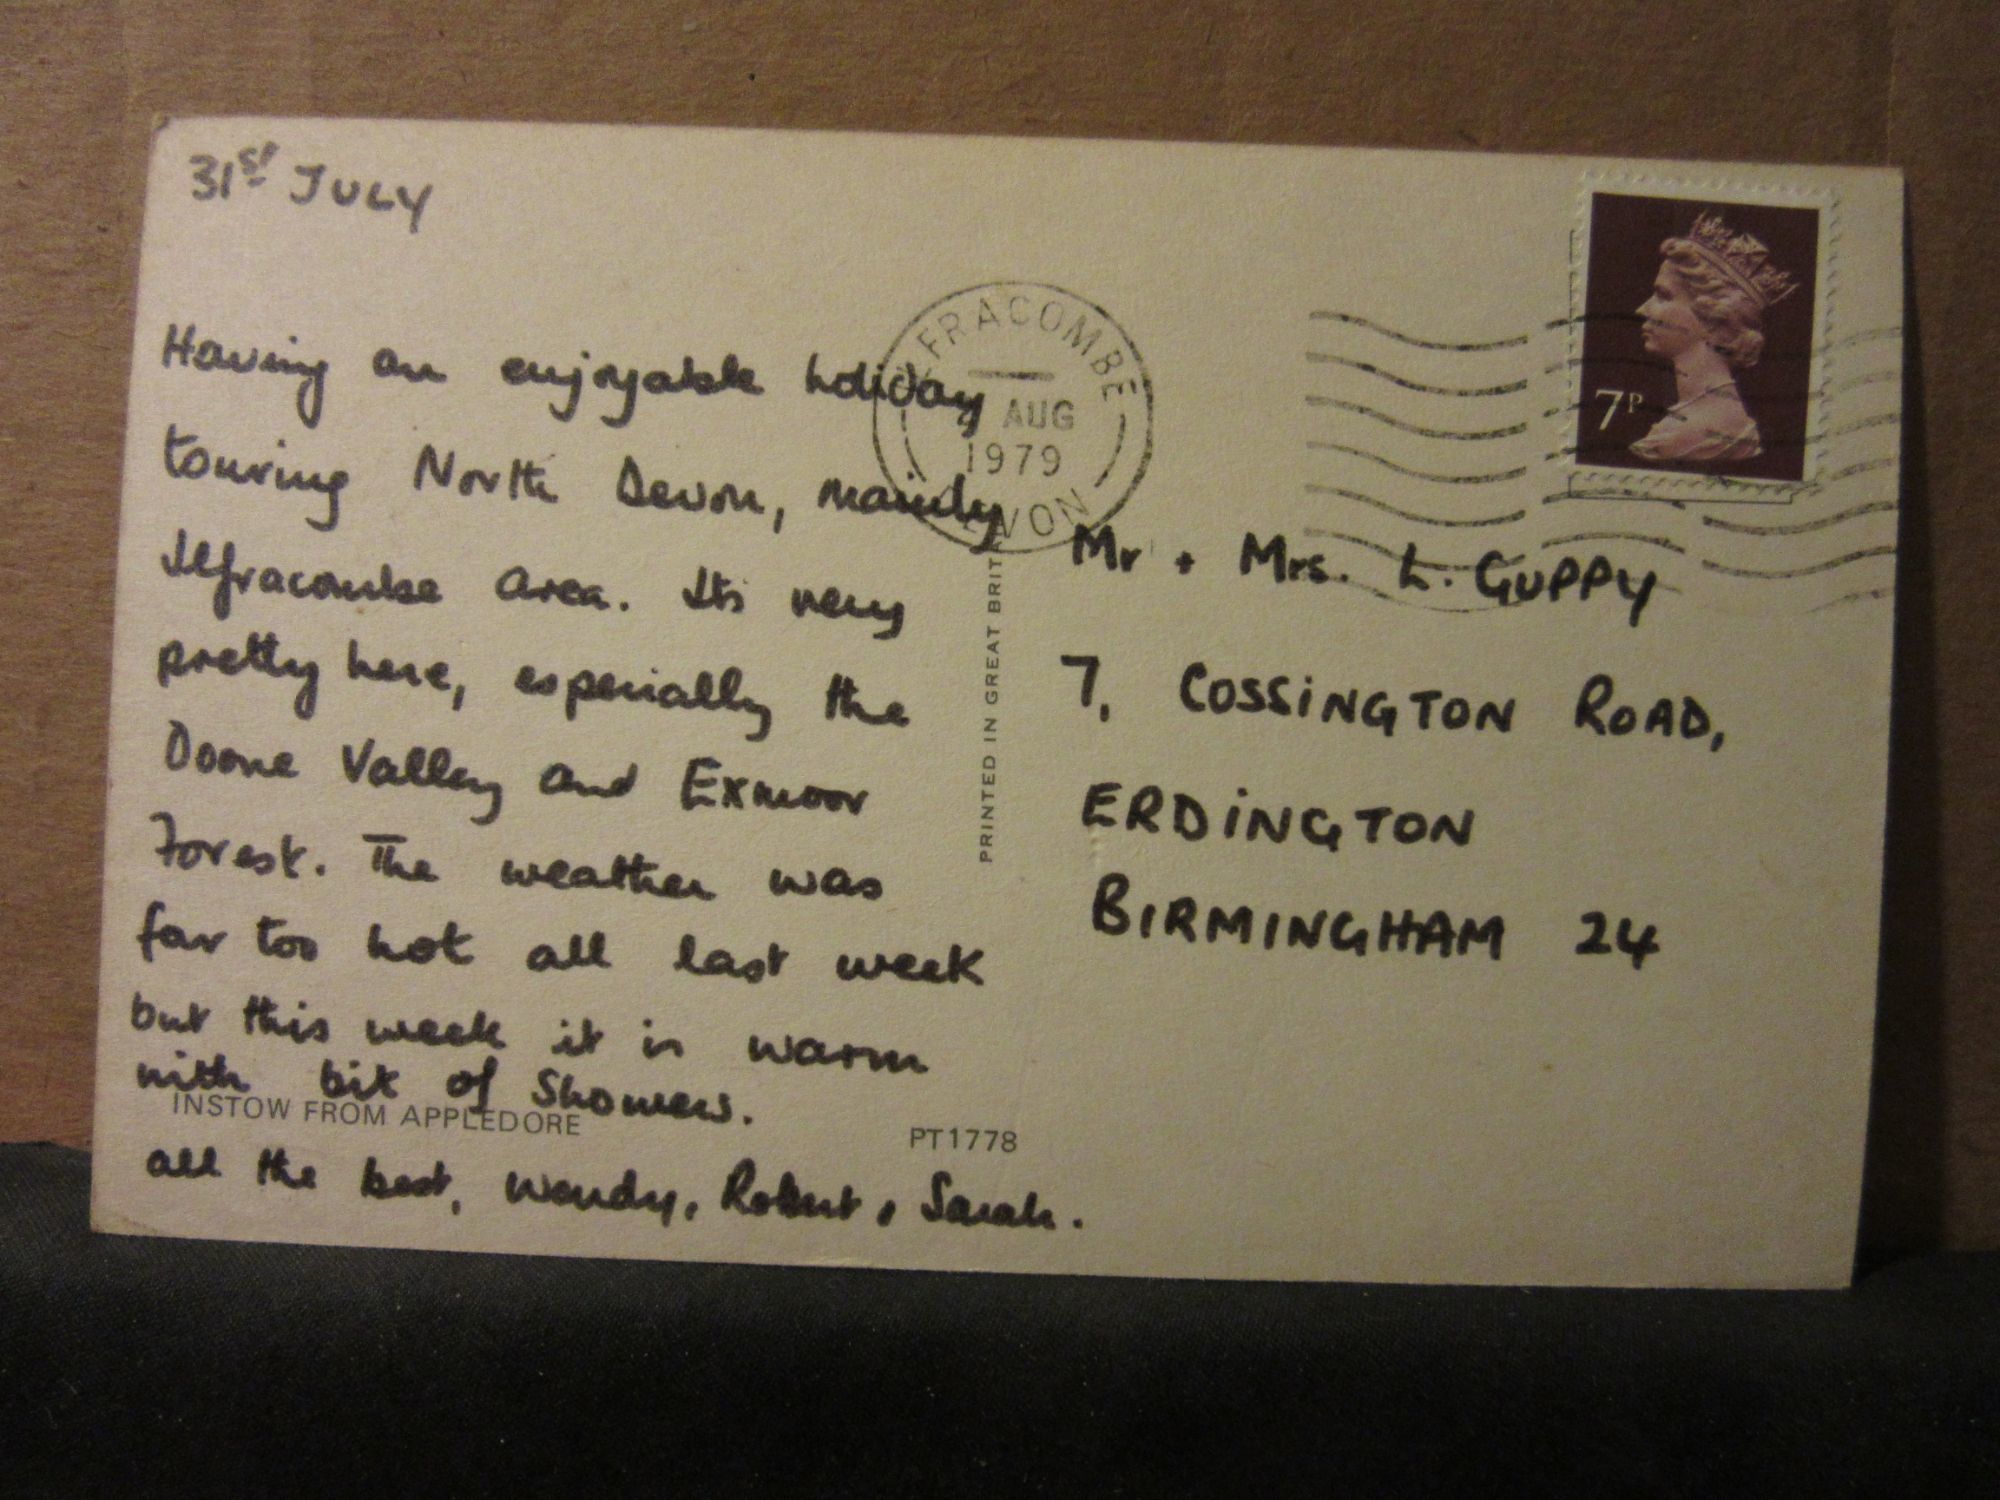 31st JULY
Having an enjoyable holiday
touring North Devon, mainly
Ilfracombe area. Its very
pretty here, especially the
Doone Valley and Exmoor
Forest. The weather was
far too hot all last week
but this week it is warm
with bit of showers.
INSTOW FROM APPLEDORE
PT1778
all the best, Wendy, Robert, Sarah.
PRINTED IN GREAT BRIT
FRACOMBE
AUG
1979
VON
7P
Mr + Mrs. L. GUPPY
7, COSSINGTON ROAD,
ERDINGTON
BIRMINGHAM 24